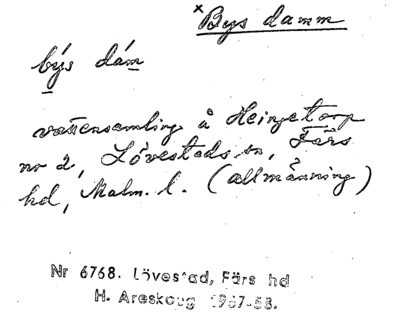 ×Bys damm
býs dám
vattensamling å Heingetorp
no 2, Lövestads sn, Färs
hd, Malm. l. (allmänning)
Nr 6768. Lövestad, Färs hd
H. Areskoug 1937-58.